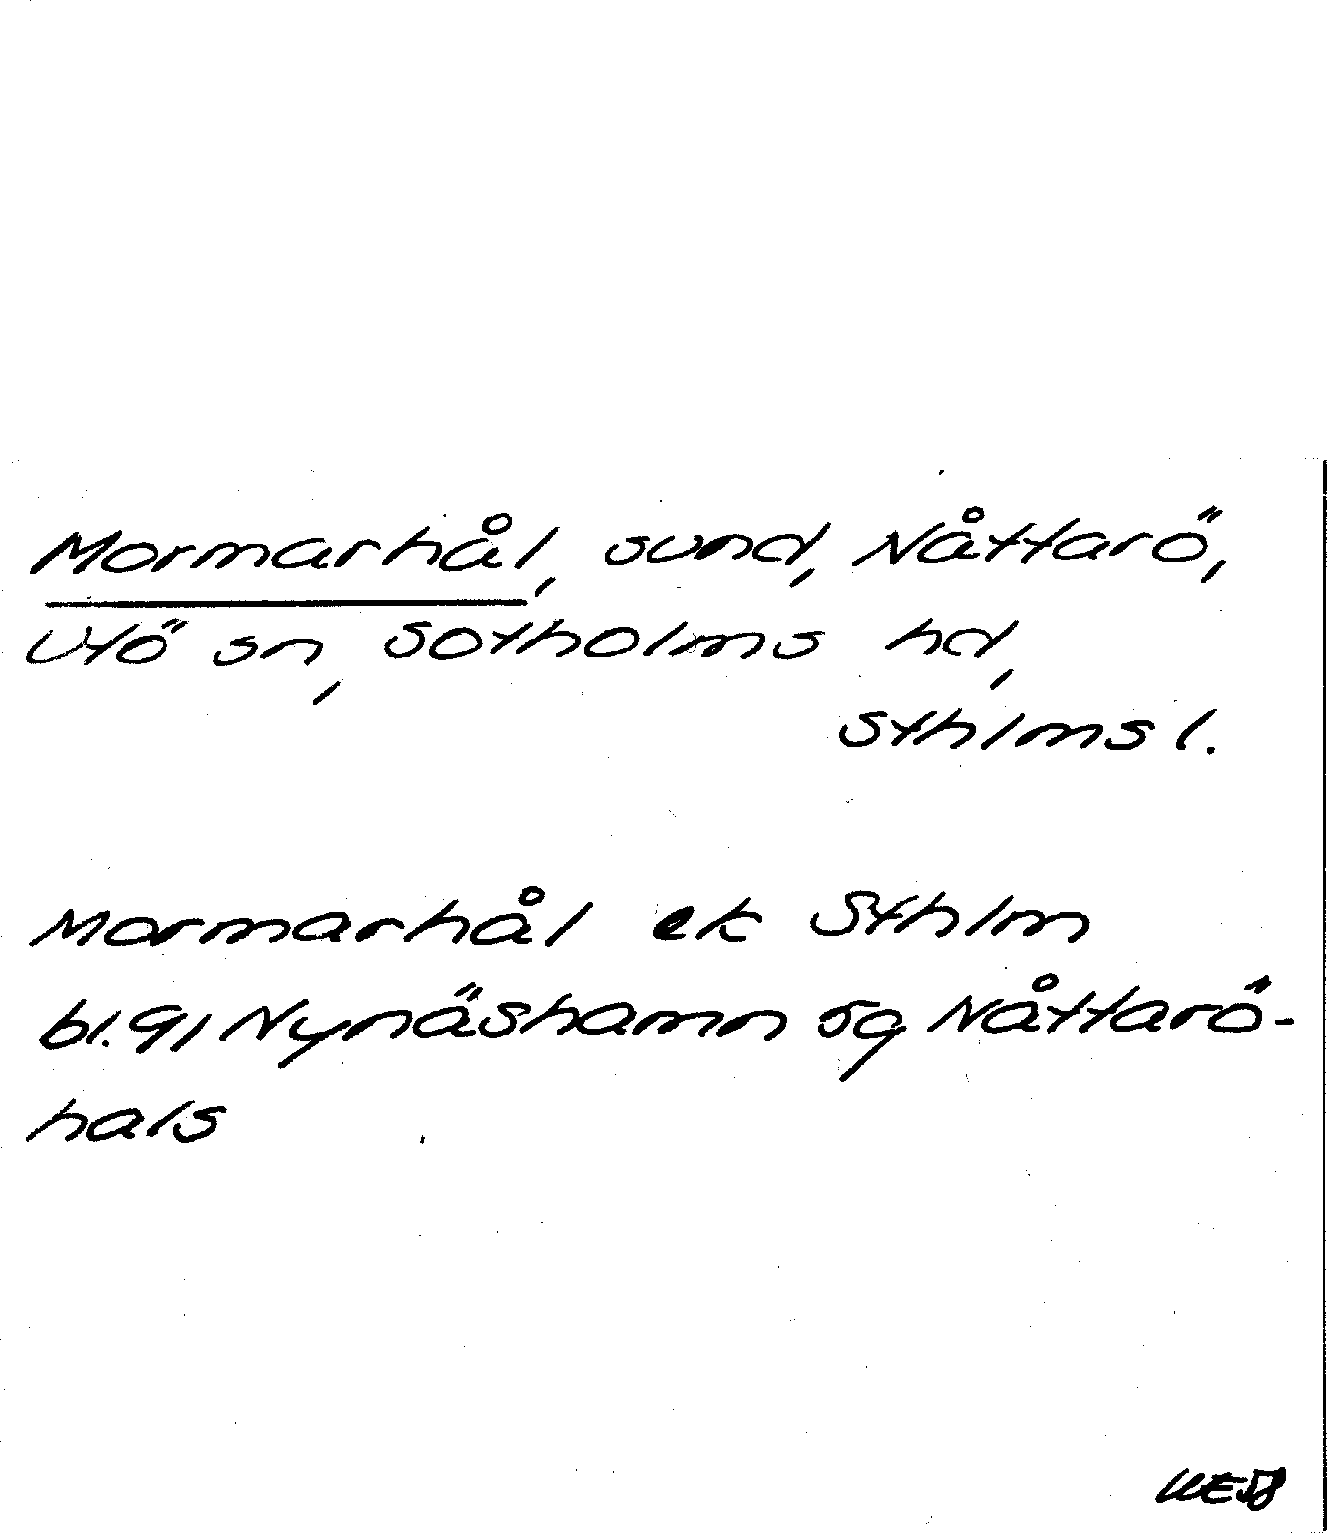 Mormarhål, sund, Nåttarö,
Utö sn, Sotholms hd,
Sthlms l.
Mormarhål ek Sthlm
bl. 91 Nynäshamn sg Nåttarö-
hals